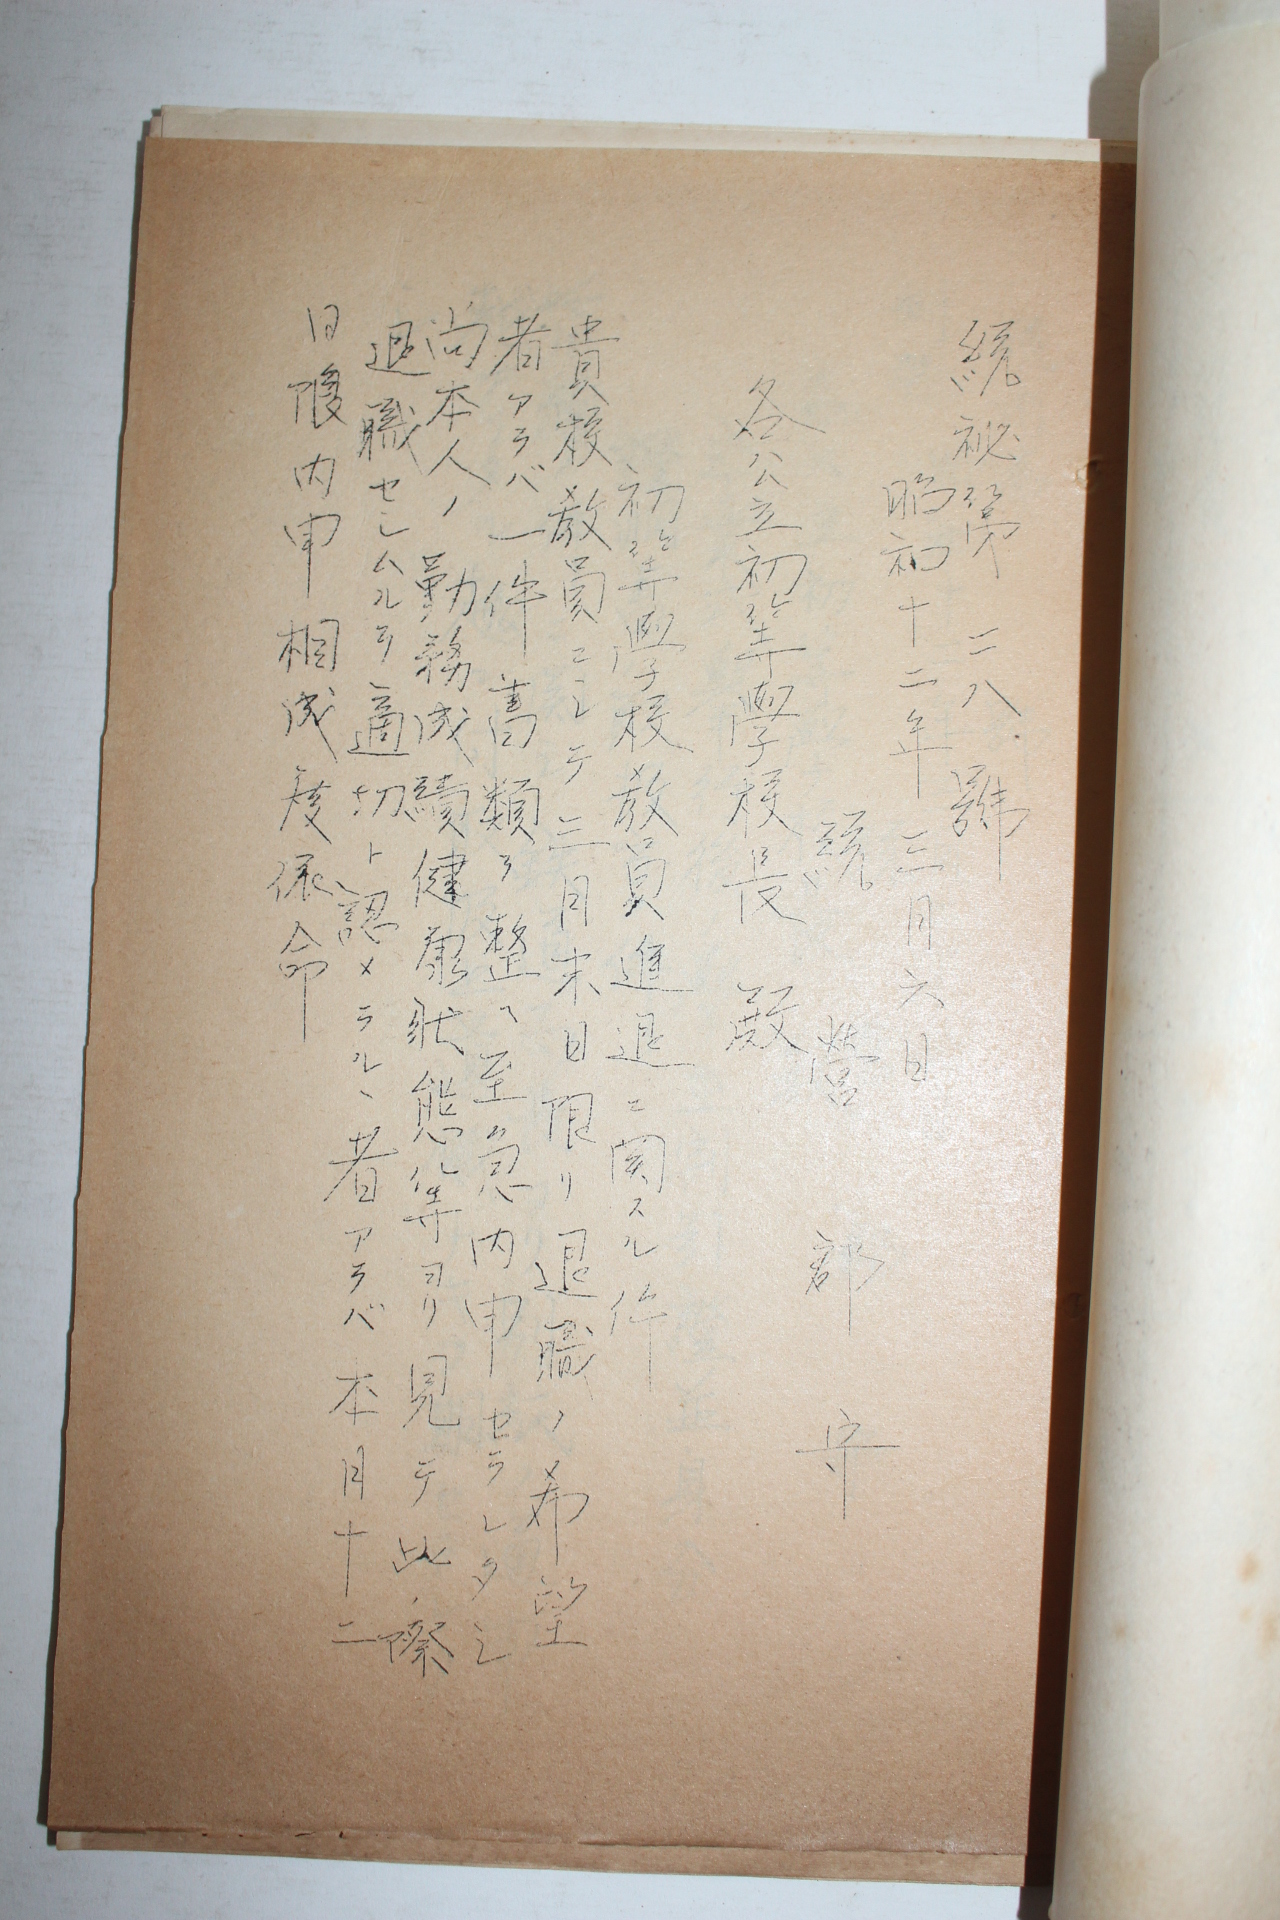 統祕第二八號
昭和十二年三月六日
統營郡守
各公立初等學校長殿
初等學校教員進退ニ関スル件
貴校教員ニシテ三月末日限リ退職ノ希望
者アラバ一件書類ヲ整ヘ至急内申セラレタシ
尚本人ノ勤務成績健康狀態等ヨリ見テ此ノ際
退職セシムルヲ適切ト認メラルヽ者アラバ本月十二
日限内申相成度依命